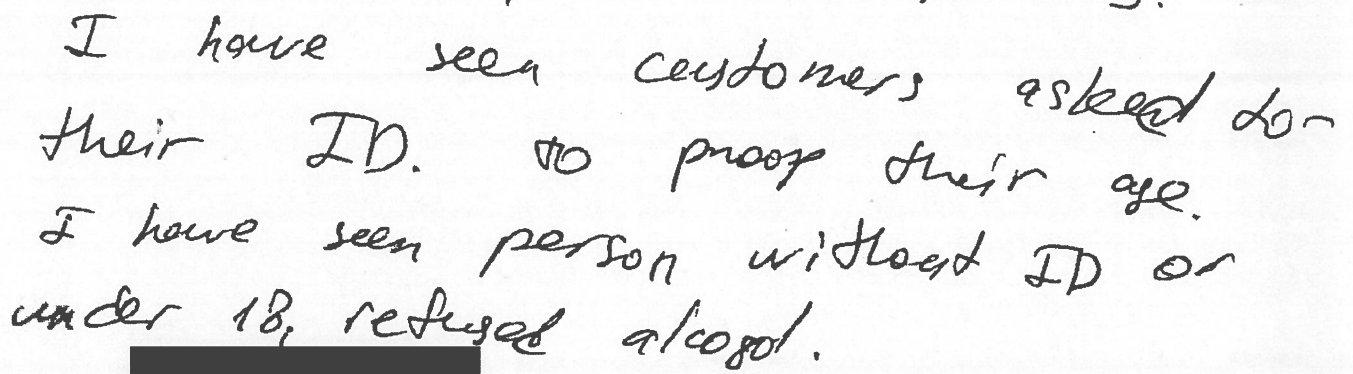 I have seen customers asked for
their ID. to proof their age.
I have seen person without ID or
under 18, refused alcogol.